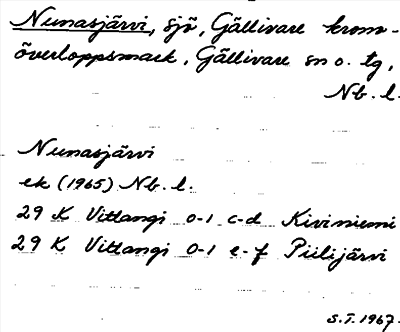 Nunasjärvi, sjö, Gällivare krono-
överloppsmark, Gällivare sn o. tg,
Nb. l.
Nunasjärvi
ek (1965) Nb. l.
29 K Vittangi 0-1 c-d Kiviniemi
29 K Vittangi 0-1 e-f Piilijärvi
S.T. 1967.